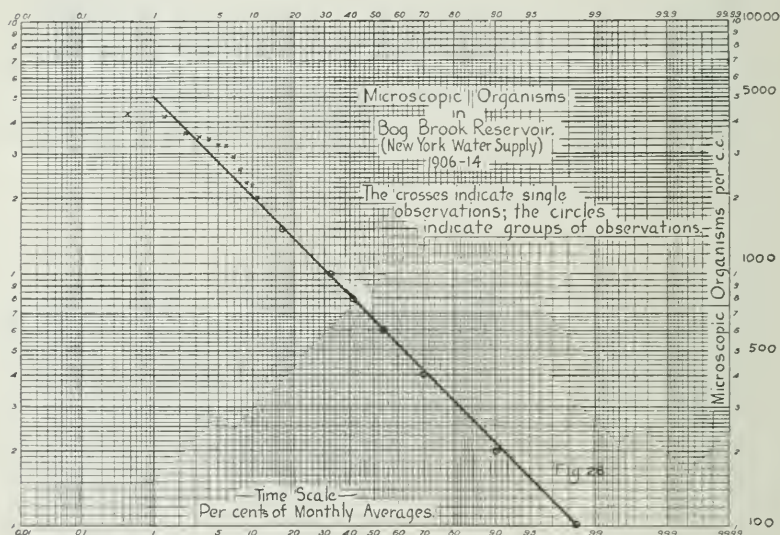 0.01 0.1 1 5 10 20 30 40 50 60 70 80 90 95 99 99.9 99.99
10 10 10000
9 9
8 8
7 7
6 6
5 5 5000
4 4
3 3
2 2
1 1 1000
9 9
8 8
7 7
6 6
5 5 500
4 4
3 3
2 2
1 1 100
Microscopic Organisms
in
Bog Brook Reservoir.
(New York Water Supply)
1906-14
The crosses indicate single
observations; the circles
indicate groups of observations.
Microscopic Organisms per c.c.
Fig 26
—Time Scale—
Per cents of Monthly Averages.
0.01 0.1 1 5 10 20 30 40 50 60 70 80 90 95 99 99.9 99.99